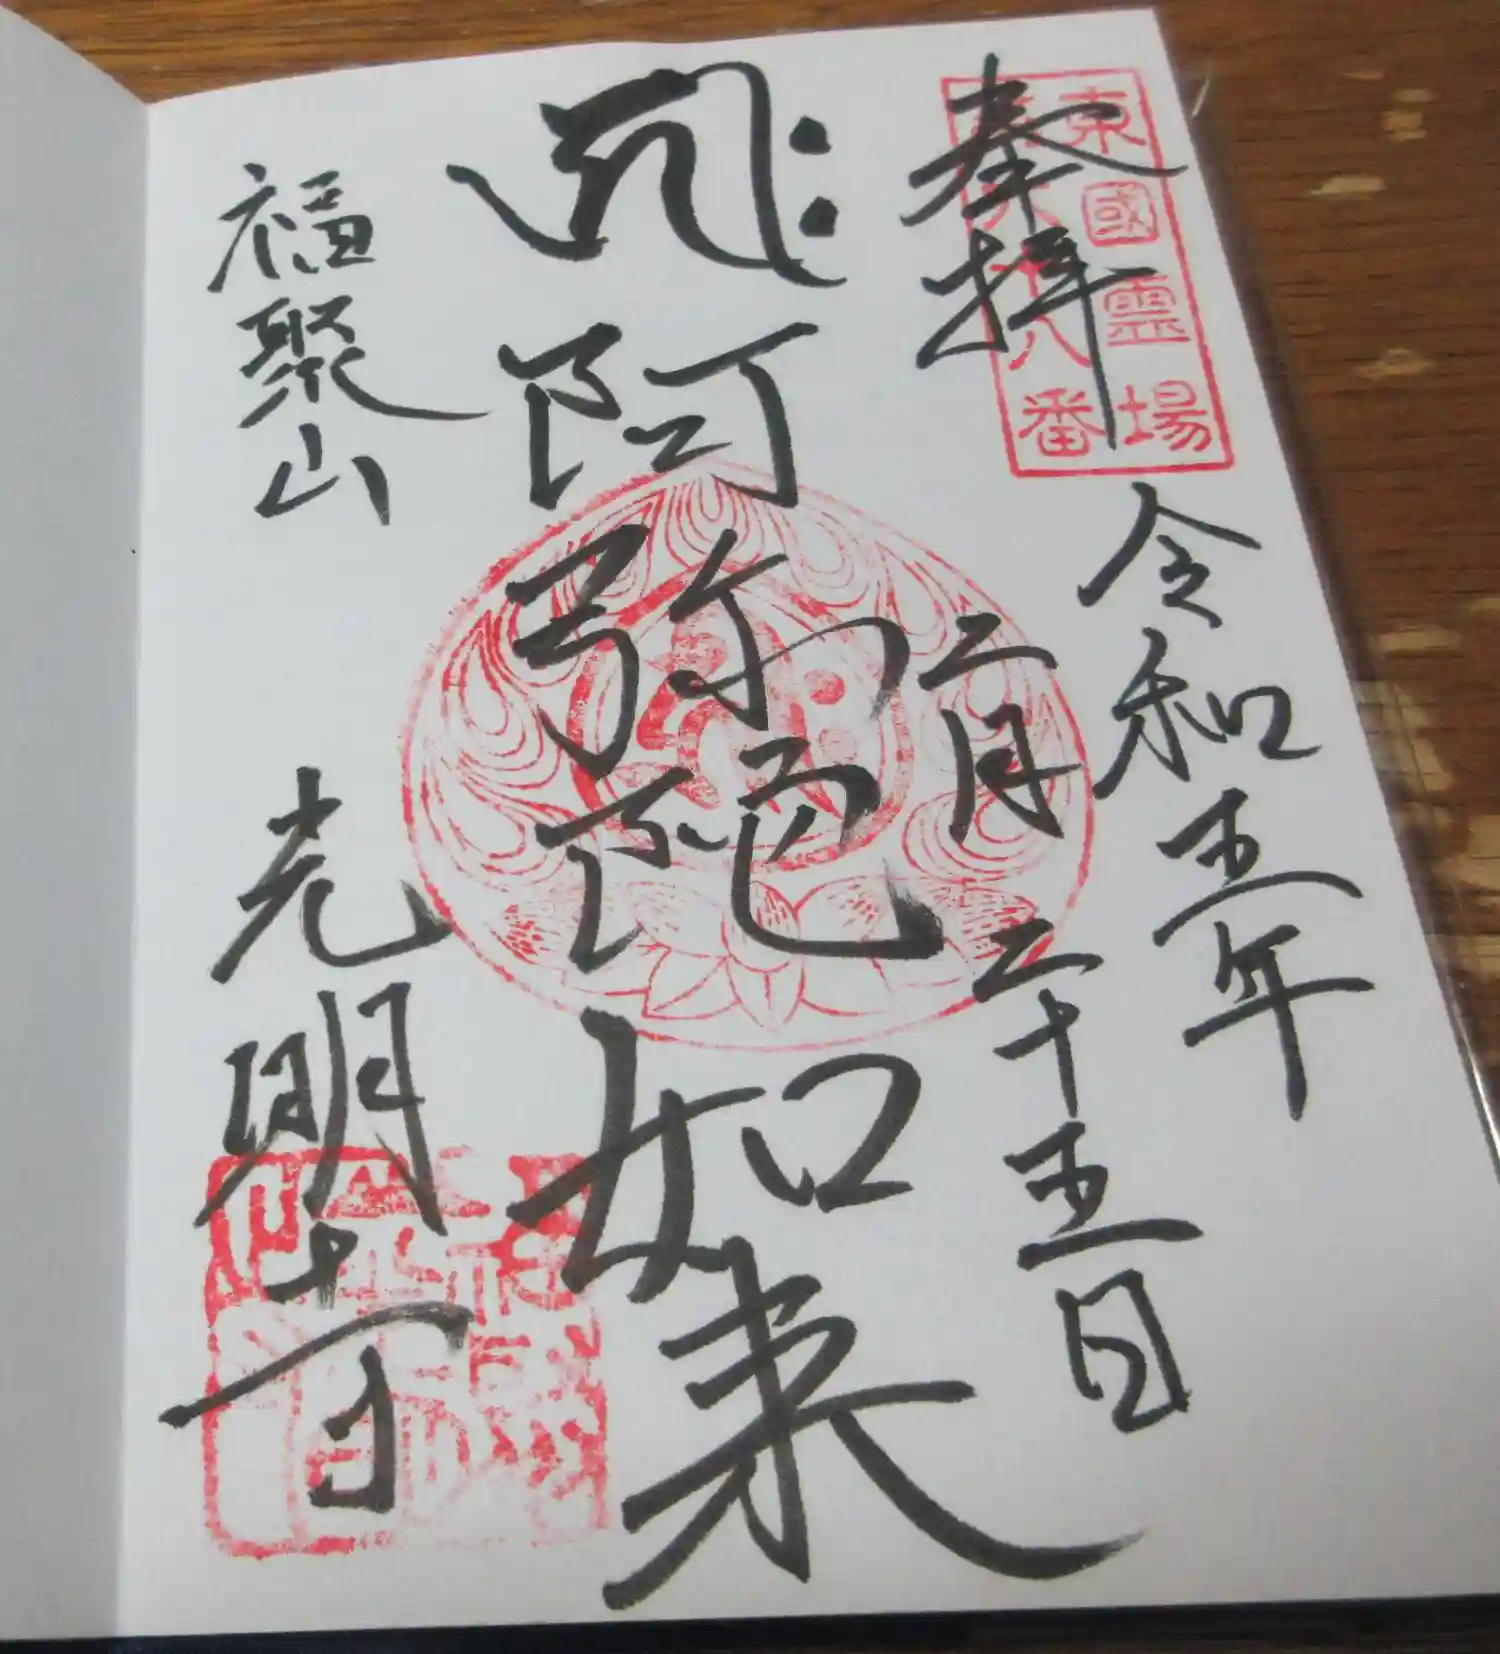 奉拝
東國霊場
八番
令和五年
二月二十五日
阿弥陀如来
福聚山
光明寺